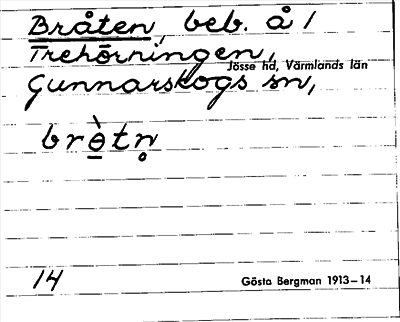 Bråten, beb. å 1
Trehörningen,
Jösse hd, Värmlands län
Gunnarskogs sn,
brὸ̱tn̥
14
Gösta Bergman 1913–14